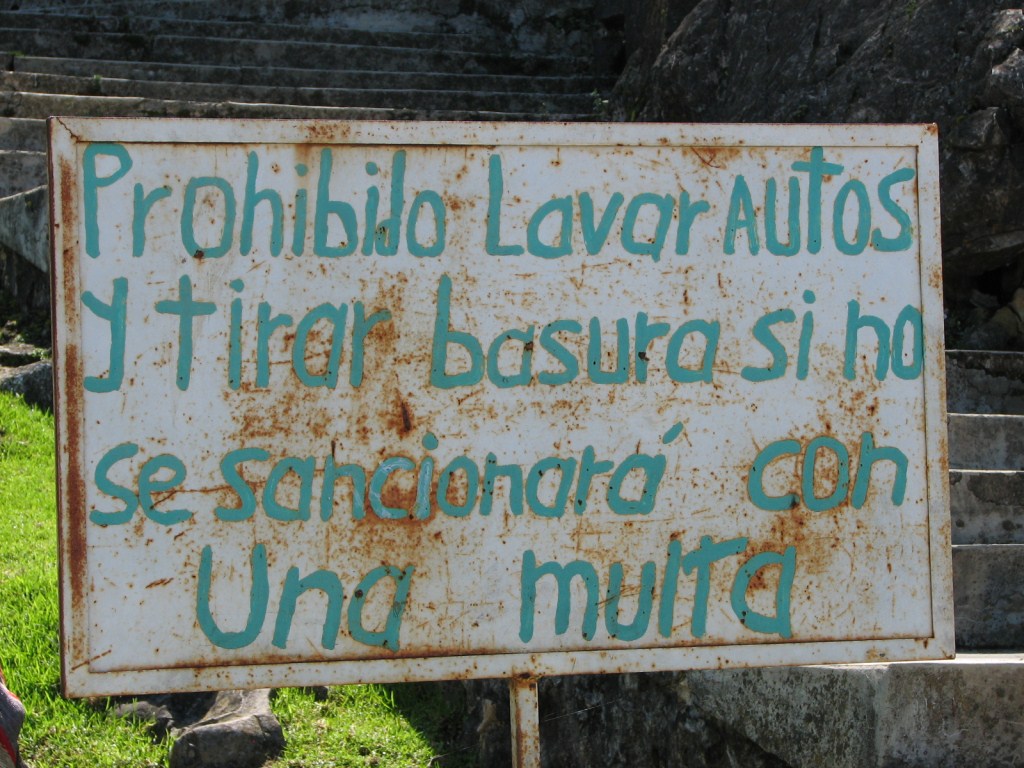 Prohibido Lavar AUtOS
y tirar basura si no
se sancionará con
Una multa